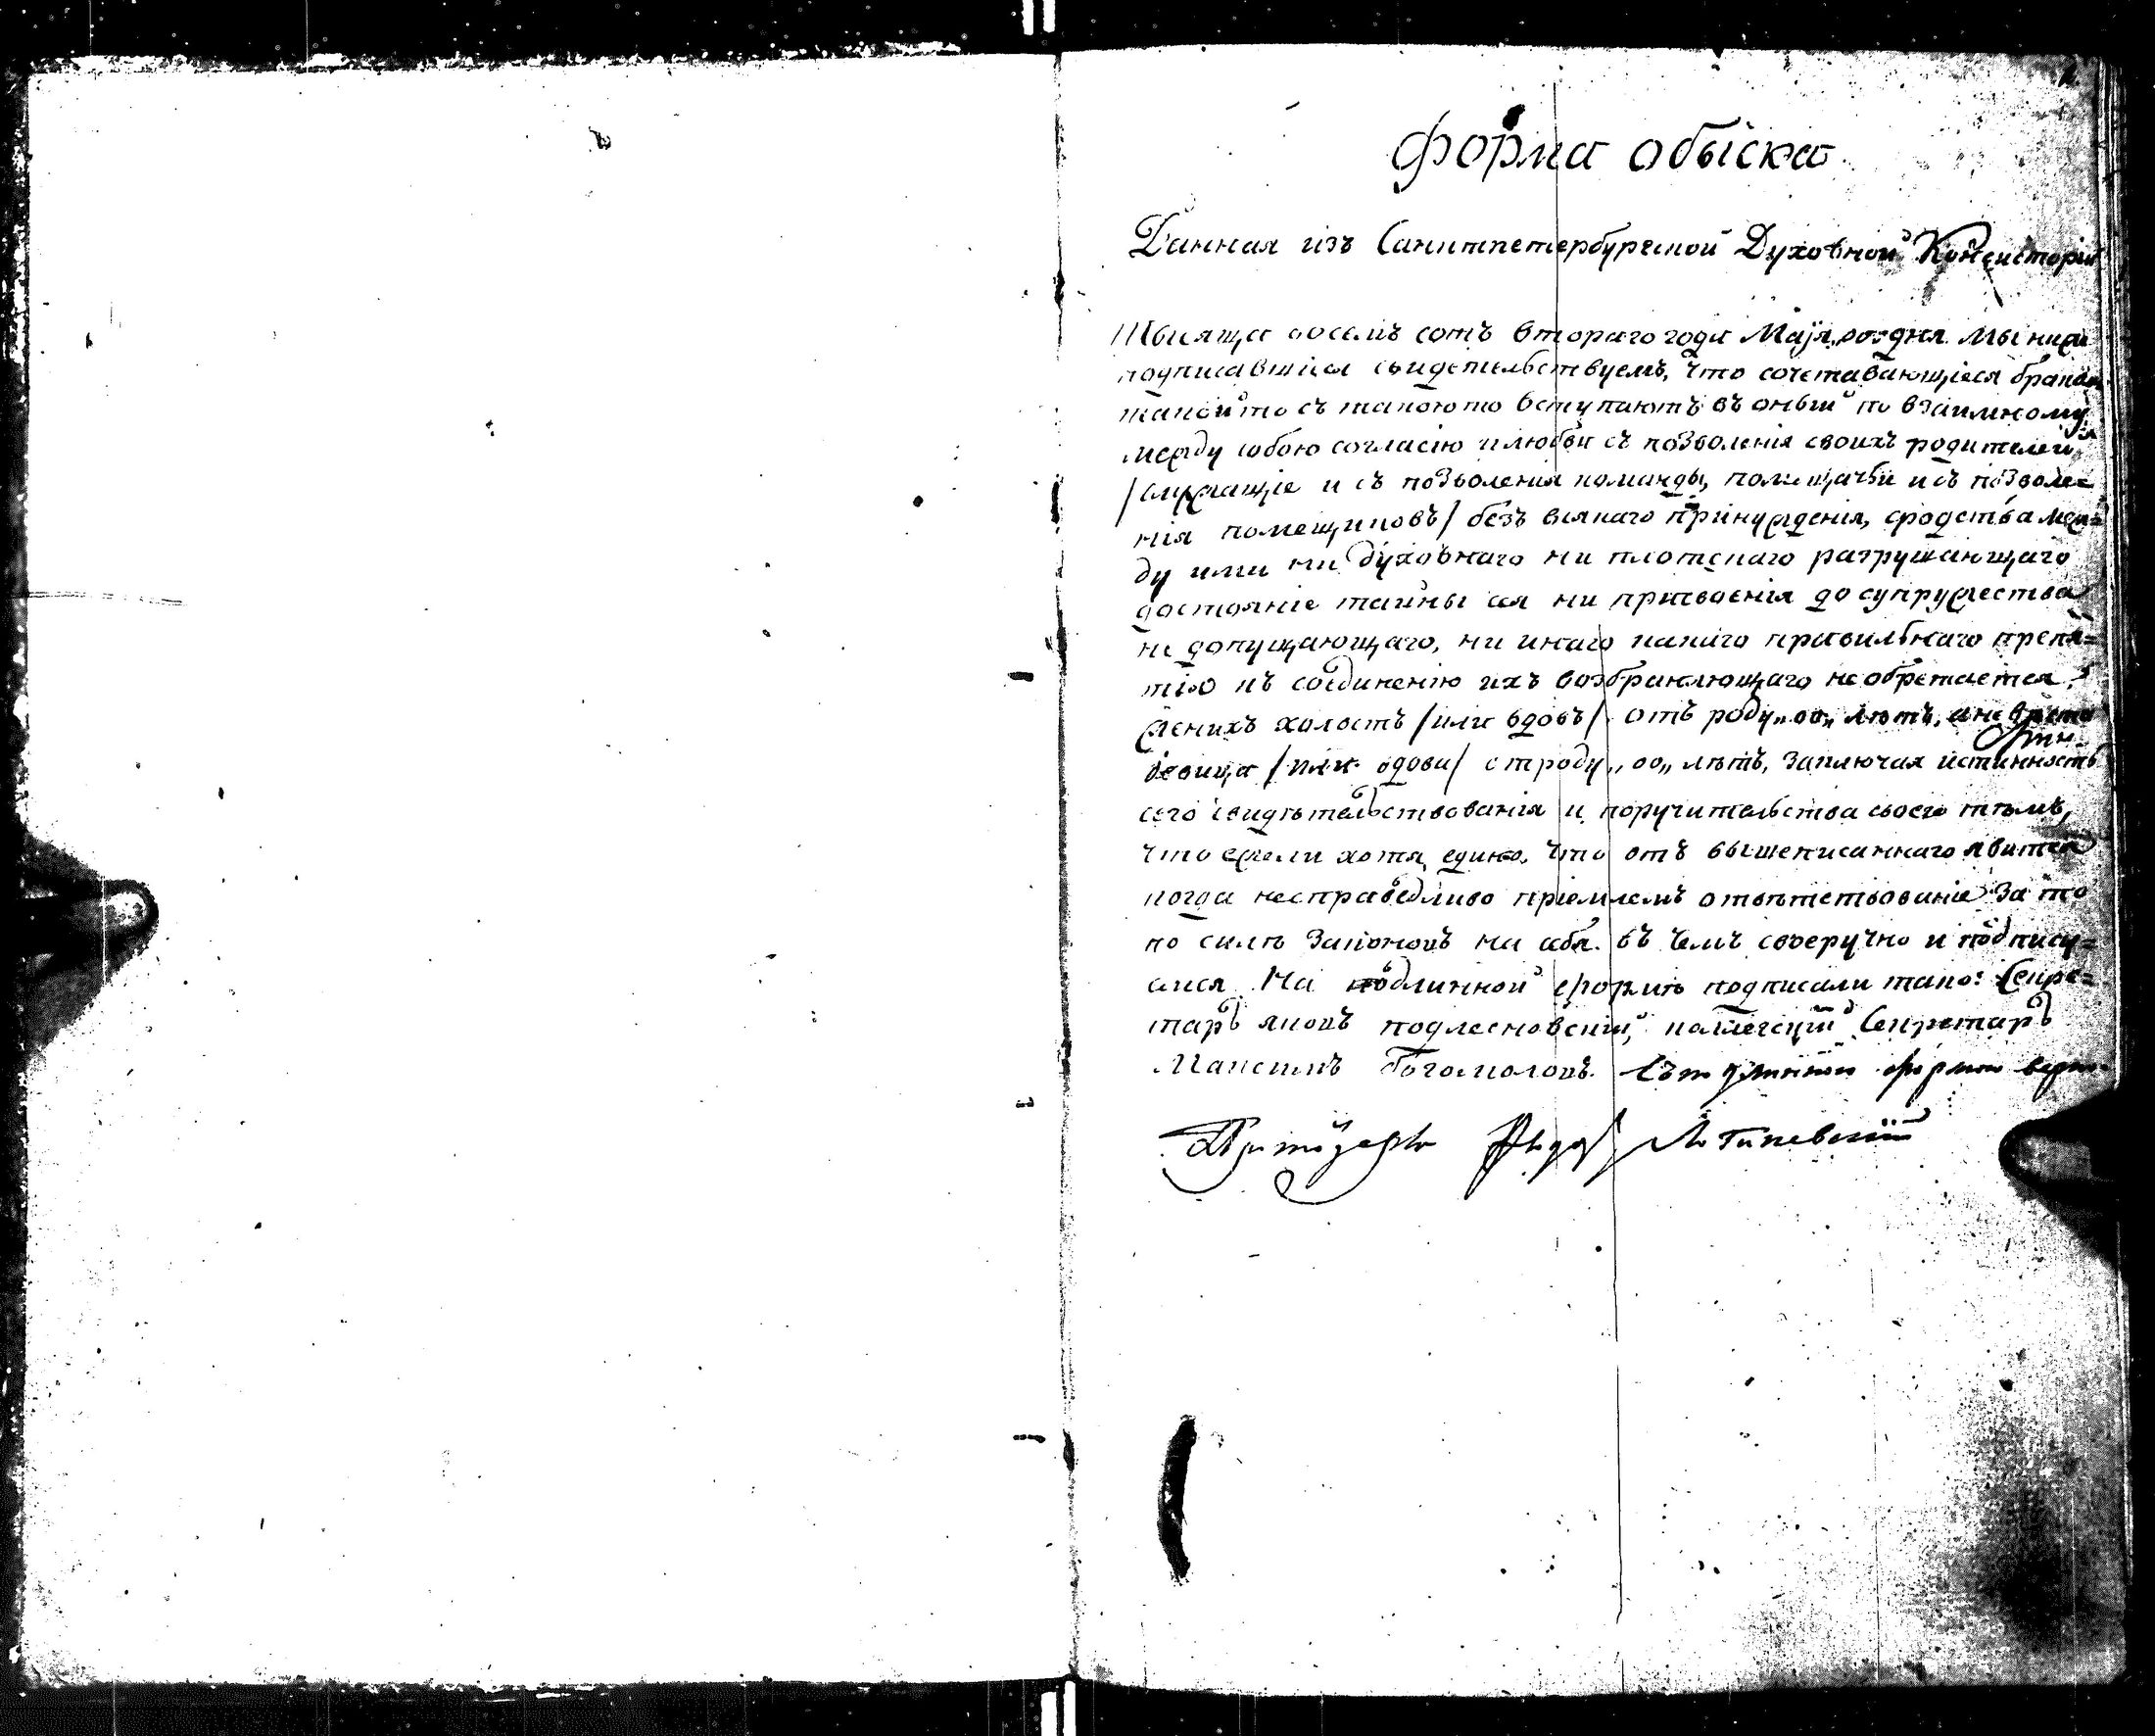 форма обыска
Данная изъ Санктпетербургской Духовной Консисторіи
Тысяща восемь сотъ втораго года Маія „оо„ дня мы ниже
подписавшіеся свидетельствуемъ, что сочетавающіеся бракомъ
такой то съ такою то вступаютъ въ оный по взаимному
между собою согласію и любви съ позволенія своихъ родителей
/служащіе и съ позволенія команды, помещичьи и съ позволе=
нія помещиковъ/ безъ всякаго принужденія, сродства меж=
ду ими ни духовнаго ни плотскаго разрушающаго
достояніе тайны сея ни присвоенія до супружества
не допущающаго, ни инаго какаго правильнаго препя=
тію къ соединенію ихъ возбраняющаго не обретается.
женихъ холостъ /или вдовъ/ отъ роду „оо„ летъ, а невеста
девица /или вдова/ отроду „оо„ летъ, Заключая истинность
сего свидѣтельствованія и поручительства своего тѣмъ,
что ежели хотя едино, что отъ вышеписаннаго явится
когда несправедливо пріемлемъ ответствованіе За то
по силѣ Законовъ на себя. въ чемъ своеручно и подпису=
емся. На подлинной формѣ подписали тако: Секре=
тарь Яковъ подлесновскій, коллегскій Секретарь
Максимъ Богомоловъ. Съ подлинной формою верно